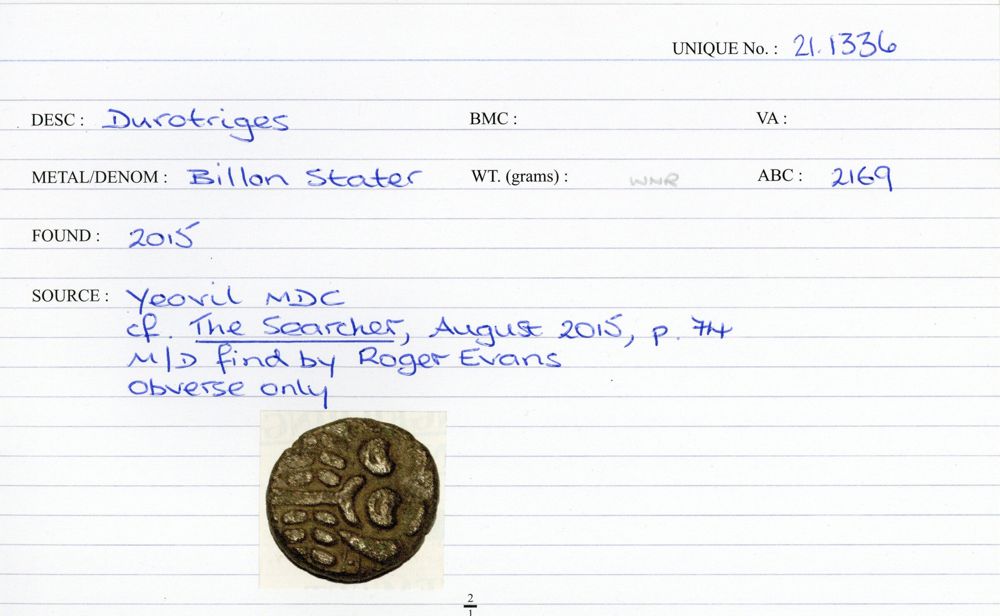 UNIQUE No. : 21.1336
DESC : Durotriges BMC : VA :
METAL/DENOM : Billon Stater WT. (grams) : WNR ABC : 2169
FOUND : 2015
SOURCE : Yeovil MDC
cf. The Searcher, August 2015, p. 74
M/D find by Roger Evans
Obverse only
2
1